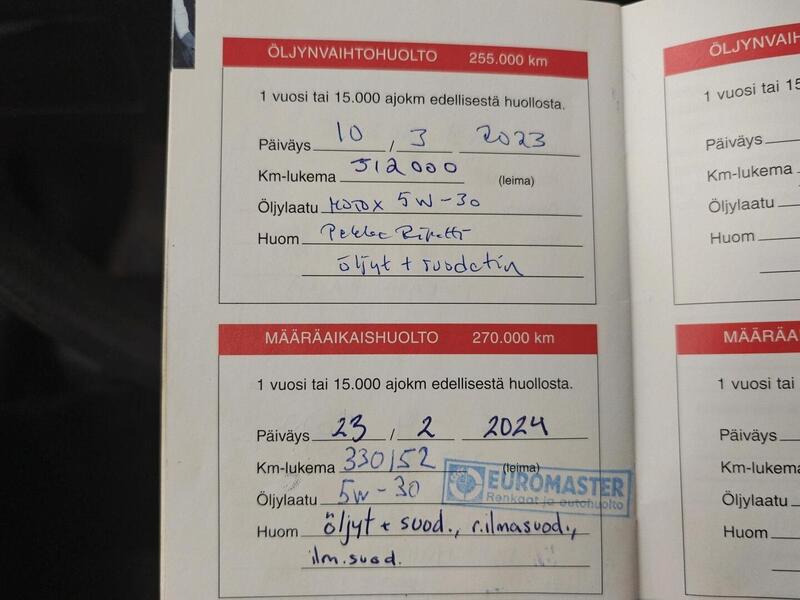 ÖLJYNVAIHTOHUOLTO 255.000 km
1 vuosi tai 15.000 ajokm edellisestä huollosta.
Päiväys 10 / 3 2023
Km-lukema 312000 (leima)
Öljylaatu MOTOX 5W-30
Huom Pekka
öljyt + suodatin
MÄÄRÄAIKAISHUOLTO 270.000 km
1 vuosi tai 15.000 ajokm edellisestä huollosta.
Päiväys 23 / 2 2024
Km-lukema 330152 (leima)
EUROMASTER
Renkaat ja autohuolto
Öljylaatu 5W-30
Huom öljyt + suod., r.ilmasuod.,
ilm.suod.
ÖLJYNVAIH
1 vuosi tai 15
Päiväys
Km-lukema
Öljylaatu
Huom
MÄÄRÄA
1 vuosi tai
Päiväys
Km-lukema
Öljylaatu
Huom